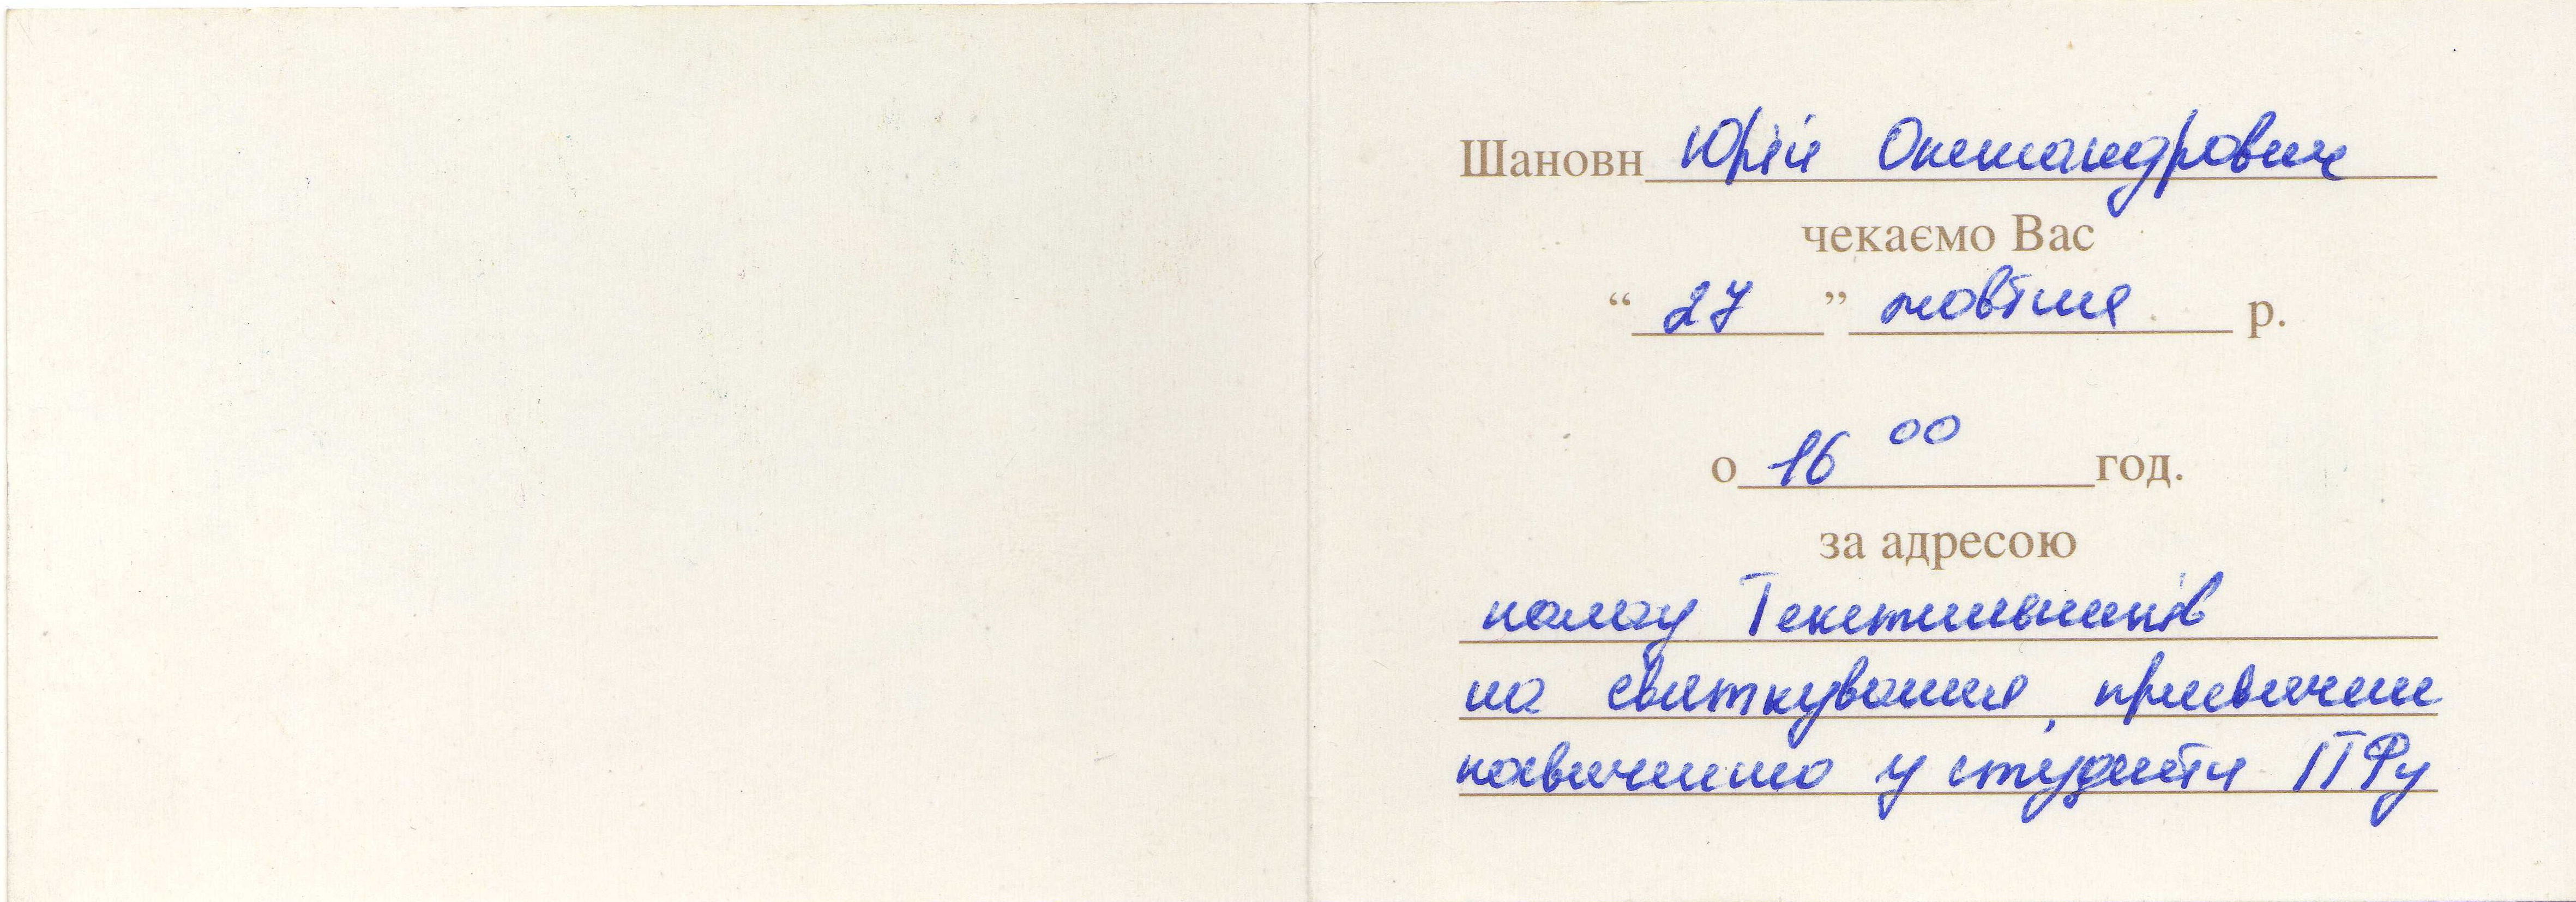 Шановн Юрій Олександрович
чекаємо Вас
“ 27 ” жовтня р.
о 16 00 год.
за адресою
палац Текстильників
на святкування, присвячене
посвяченню у студенти ПФу